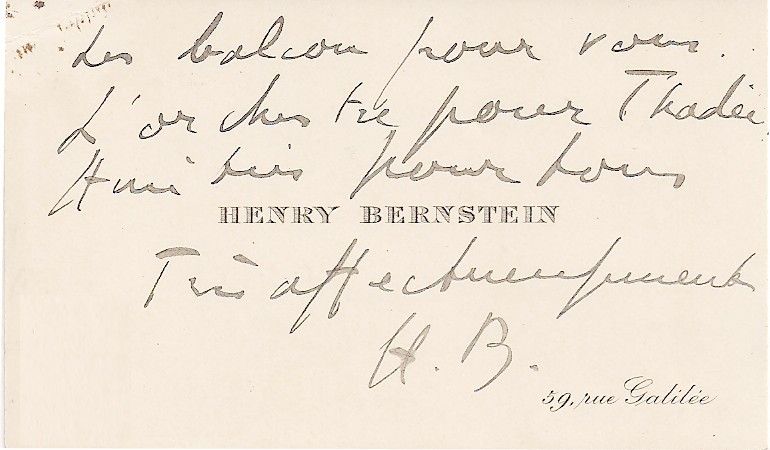 Les balcon pour vous.
L'orchestre pour Thadée,
Amitiés pour tous
HENRY BERNSTEIN
Très affectueusement
H. B.
59, rue Galilée